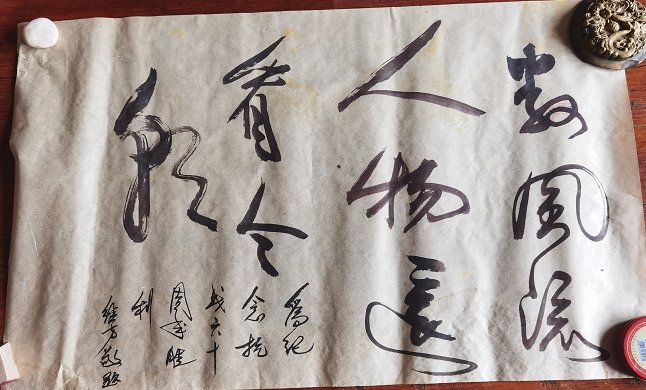 數風流
人物還
看今
朝
為紀
念抗
战六十
周年胜
利
敬题